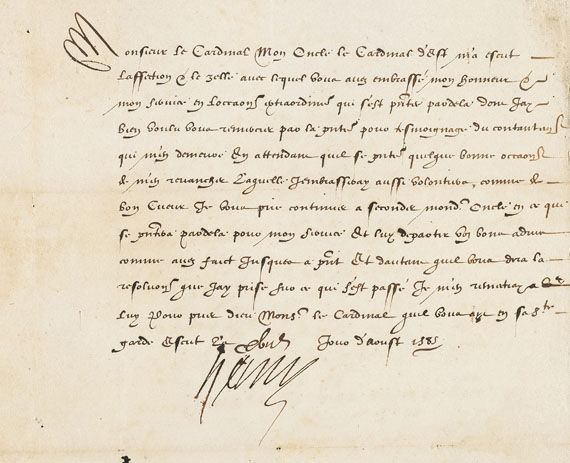 Monsieur le Cardinal Mon Oncle le Cardinal d'Est m'a escrit
l'affection & le zelle avec lequel vous avez embrassé mon honneur &
mon service en l'occasion extraordinre qui s'est pntée pardela dont J'ay
bien voulu vous remercier par la pnte pour tesmoignage du contantemt
qui m'en demeure En attendant quil se pnte quelque bonne occasion
de m'en revancher Laquelle J'embrasseray aussi volontiers, comme de
bon Cueur Je vous prie continuer a seconder mond. Oncle en ce qui
se pntera pardela pour mon service Et luy departir voz bons advis
comme avez faict Jusques a pnt Et dautant quil vous dira la
resolution que J'ay prise sur ce qui s'est passé Je m'en remettray a
luy Pour prier dieu Monsr le Cardinal quil vous ayt en sa ste
garde Escrit Jour d'Aoust 1585
Henry